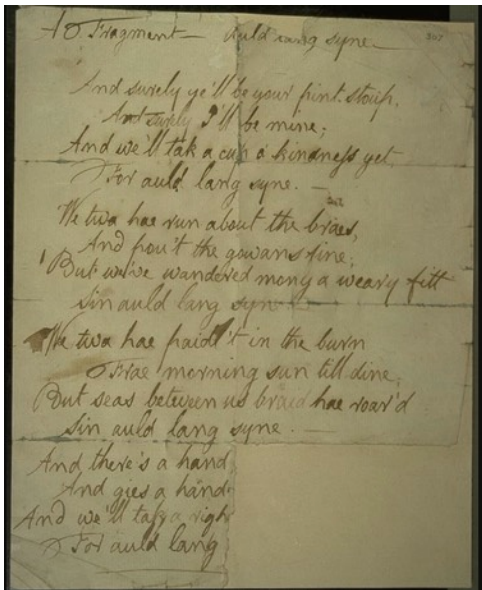 A Fragment — Auld lang syne —
307
And surely ye'll be your pint-stoup,
And surely I'll be mine;
And we'll tak a cup o' kindness yet
For auld lang syne. —
We twa hae run about the braes,
And pou't the gowans fine;
But we've wandered mony a weary fitt
Sin auld lang syne
We twa hae paidl't in the burn
Frae morning sun till dine;
But seas between us braid hae roar'd
Sin auld lang syne. —
And there's a hand
And gies a hand
And we'll tak a righ
For auld lang